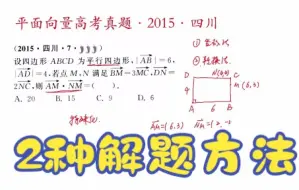 平面向量高考真题·2015·四川
(2015·四川·7·🌶🌶🌶)
设四边形 ABCD 为平行四边形,|AB|=6,
|AD|=4.若点 M,N 满足BM=3MC,DN=
2NC,则AM·NM=( ).
A. 20 B. 15 C. 9 D. 6
① 坐标法
②
D
C
M (6,3)
4
A 6 B
特殊化
AM=(6,3)
2种解题方法